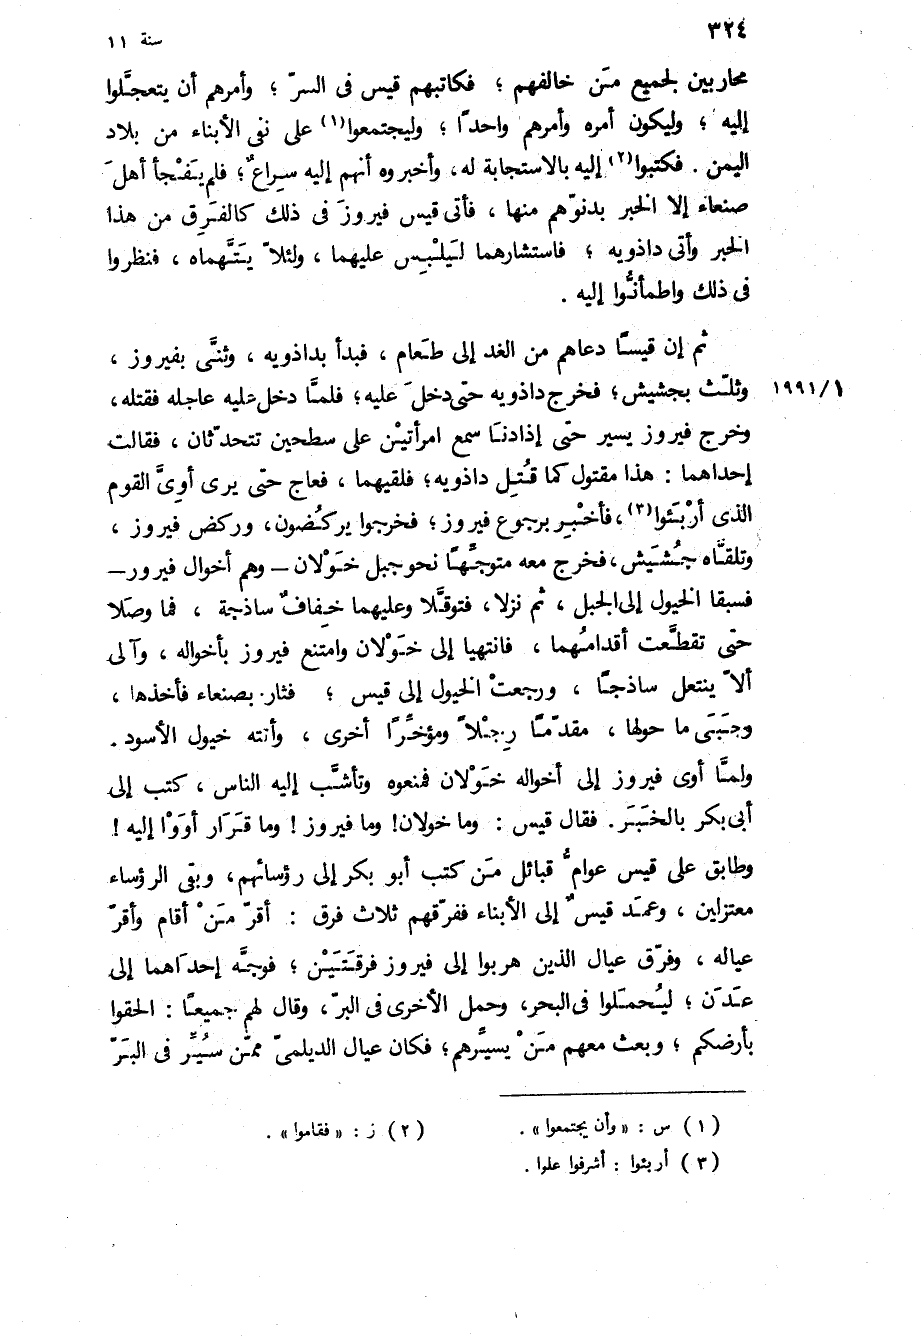 ٣٢٤
سنة ١١
محاربين لجميع مَن خالفهم ؛ فكاتبهم قيس فى السرّ ؛ وأمرهم أن يتعجَّلوا
إليه ؛ وليكون أمره وأمرهم واحدًا ؛ وليجتمعوا(١) على نفى الأبناء من بلاد
اليمن . فكتبوا(٢) إليه بالاستجابة له، وأخبروه أنهم إليه سِراعٌ؛ فلم يَفْجأ أهلَ
صنعاء إلا الخبر بدنوّهم منها ، فأتى قيس فيروزَ فى ذلك كالفَرِق من هذا
الخبر وأتى داذويه ؛ فاستشارهما لَيَلْبِس عليهما ، ولئلاّ يَتَّهماه ، فنظروا
فى ذلك واطمأنُّوا إليه .
ثم إن قيسًا دعاهم من الغد إلى طَعام ، فبدأ بداذويه ، وثنَّى بفيروز ،
١/١٩٩١ وثلّث بجشيش؛ فخرج داذويه حتى دخلَ عليه؛ فلمَّا دخل عليه عاجله فقتله،
وخرج فيروز يسير حتّى إذا دنا سمع امرأتيْن على سطحين تتحدّثان ، فقالت
إحداهما : هذا مقتول كما قُتِل داذويه؛ فلقيهما ، فعاج حتّى يرى أوِىَّ القوم
الذى أرْبَئوا(٣)،فأخْبِر برجوع فيروز؛ فخرجوا يركُضون، وركض فيروز ،
وتلقَّاه جُشَيش،فخرج معه متوجِّهًا نحو جبل خَوْلان – وهم أخوال فيرور–
فسبقا الخيول إلى الجبل ، ثم نزلا، فتوقَّلا وعليهما خِفافٌ ساذجة ، فما وصَلا
حتّى تقطَّعت أقدامُهما ، فانتهيا إلى خَوْلان وامتنع فيروز بأخواله ، وآلى
ألاّ ينتعل ساذجًا ، ورجعتْ الخيول إلى قيس ؛ فثار بصنعاء فأخذها ،
وجَبَى ما حولها ، مقدّمًا رِجْلاً ومؤخَّرًا أخرى ، وأتته خيول الأسود.
ولمَّا أوى فيروز إلى أخواله خَوْلان فمنعوه وتأشَّب إليه الناس ، كتب إلى
أبى بكر بالخَبَر. فقال قيس : وما خولان! وما فيروز ! وما قَرَار أوَوْا إليه !
وطابق على قيس عوامُّ قبائل مَن كتب أبو بكر إلى رؤسائهم، وبقى الرؤساء
معتزلين ، وعمَد قيسٌ إلى الأبناء ففرّقهم ثلاث فرق : أقرّ مَنْ أقام وأقرّ
عياله ، وفرّق عيال الذين هربوا إلى فيروز فرقتَيْن ؛ فوجَّه إحداهما إلى
عَدَن ؛ ليُحمَلوا فى البحر، وحمل الأخرى فى البرّ ، وقال لهم جميعًا : الحقوا
بأرضكم ؛ وبعث معهم مَنْ يسيِّرهم؛ فكان عيال الديلمىّ ممّن سُيِّر فى البَرّ
(١) س : « وأن يجتمعوا» . (٢) ز : « فقاموا» .
(٣) أربئوا : أشرفوا علوا .